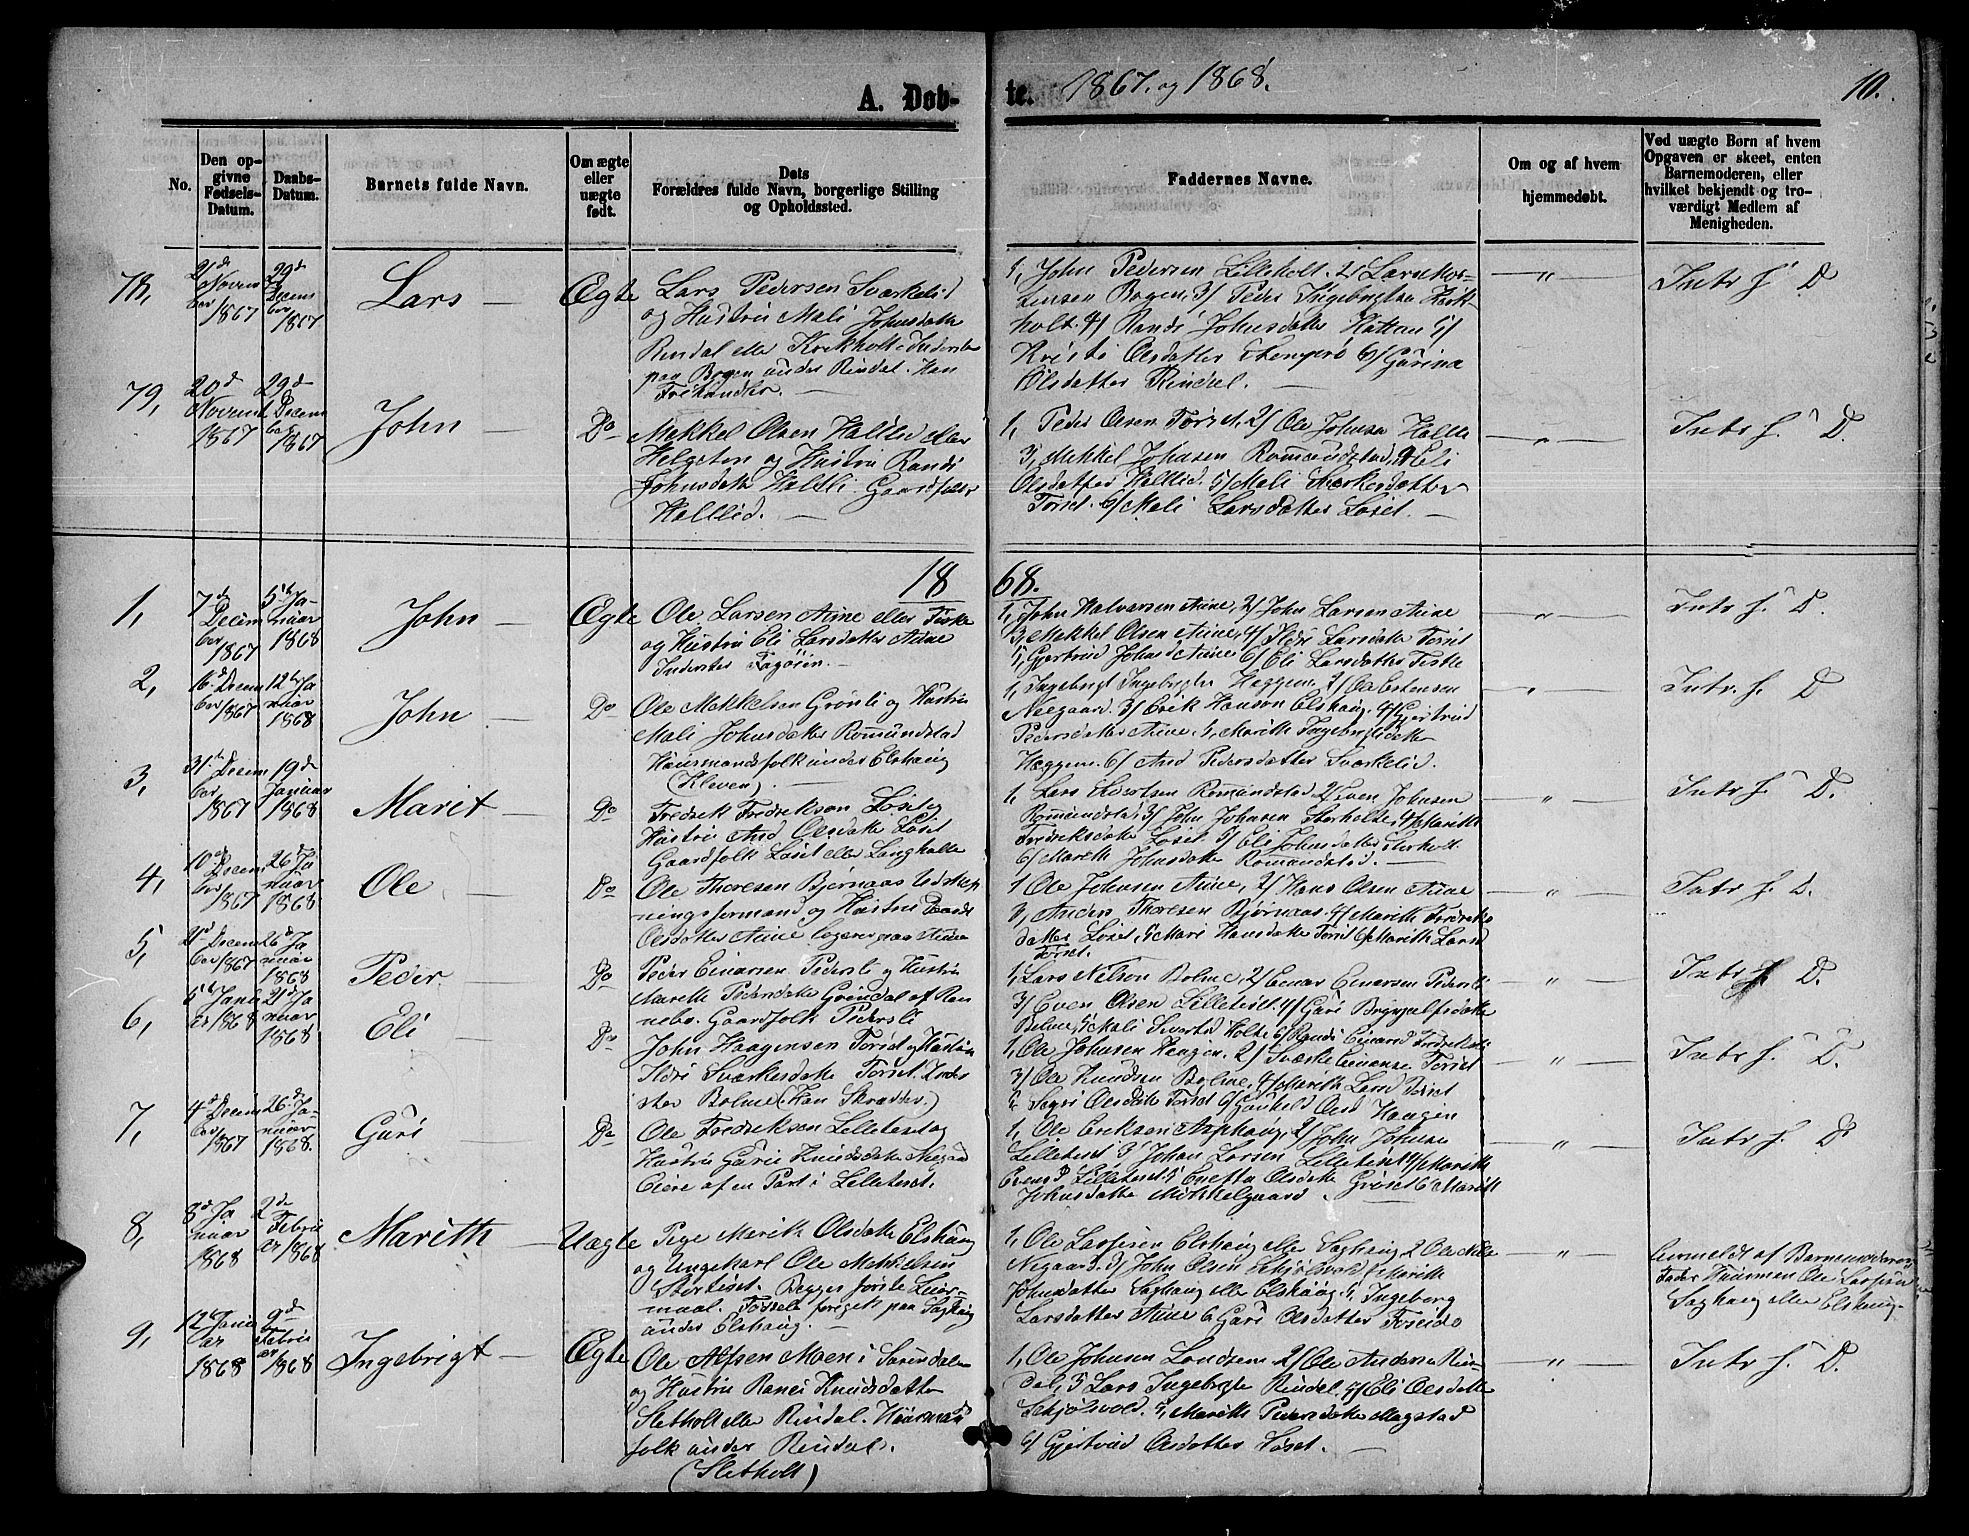 A. Døb-
te. 1867. og 1868.
10.
No.
Den op-
givne
Fødsels-
Datum.
Daabs-
Datum.
Barnets fulde Navn.
Om ægte
eller
uægte
født.
Dets
Forældres fulde Navn, borgerlige Stilling
og Opholdssted.
Faddernes Navne.
Om og af hvem
hjemmedøbt.
Ved uægte Børn af hvem
Opgaven er skeet, enten
Barnemoderen, eller
hvilket bekjendt og tro-
værdigt Medlem af
Menigheden.
78,
Novem
ber
1867
29d
Decem
ber
1867
Lars
Ægte
Lars Pedersen Sværkelid
og Hustru Mali Johnsdatter
Rindal eller Kirkholt Inderster
paa Bogen under Rindal. Han
Frihandler.
1, John Pedersen Lilleholt. 2/ Lars
Bogen, 3/ Peder Ingebrigtsen
holt. 4/ Randi Johnsdatter Hattan 5/
Kristi Olsdatter 6/ Gurina
Olsdatter Rindal.
"
Intr. f. D
79,
20d
Novemb
1867
29d
Decem
ber
1867
John
Do
Mekkel Olsen Hallid eller
Helgeten og Hustru Randi
Johnsdatter Halli Gaardfolk
Hallid.
1, Peder Olsen Torset, 2/ Ole Johnsen Halle
3, Mekkel Johnsen Romundstad, 4 Eli
Olsdatter Hallid. 5/ Mali Sværkesdatter
Torset. 6/ Mali Larsdatter Løset.
"
Intr. f. D.
1868.
1,
7d
Decem
ber
1867
5te Ja-
nuar
1868
John
Ægte
Ole Larsen Aune eller Fiske
og Hustru Eli Larsdatter Aune
Inderster Fagøren.
1, John Halvorsen Aune, 2/ John Larsen Aune
3, Mekkel Olsen Aune, 4/ Ildri Larsdatter Torset
5, Gjertrud Johnsd Aune 6/ Eli Larsdatter Fiske
"
Intr. f. D.
2,
16d Decem
ber
1867
12te Ja
nuar
1868
John
Do
Ole Mekkelsen Grønli og Hustru
Mali Johnsdatter Romundstad
Huusmandsfolk under Elshaug
(Kleven).
1, Ingebrigt Ingebrigtsen Heggem, 2/ Ole Estensen
Negaard. 3/ Erik Hansen Elshaug. 4/ Gjertrud
Pedersdatter Aune. 5, Marith Ingebrigtsdatter
Heggem. 6/ And Pedersdatter Sværkelid.
"
Intr. f. D
3,
31te Decem
ber
1867
19d
Januar
1868
Marit
Do
Fredrik Fredriksen Løset og
Hustru And Olsdatter Løset
Gaardfolk Løset eller Langhalle
1, Lars Romundstad 2/ Even Johnsen
Romundstad, 3/ John Johnsen Storholt, 4/ Marith
Fredriksdatter Løset. 5/ Eli Johnsdatter Storholt
6/ Marith Johnsdatter Romundstad.
"
Intr. f. D.
4,
10d Decem
ber
1867
26d Ja
nuar
1868
Ole
Do
Ole Thoresen Bjørnaas Udskep
ningsformand og Hustru Randi
Olsdatter Aune logerer paa Aune
1, Ole Johnsen Aune, 2/ Hans Olsen Aune
3, Anders Thoresen Bjørnaas. 4/ Marith Fredriks
datter Løset, 5 Mari Hansdatter Torset 6/ Marith Larsd
Torset.
"
Intr. f. D.
5,
21d Decem
ber 1867
26d Ja
nuar
1868
Peder
Do
Peder Einarsen Pedersli og Hustru
Marith Pedersdatter Grøndal af Ren
nebo. Gaardfolk Pedersli
1, Lars Nelson Bolme, 2/ Einar Einarsen Pedersli
3/ Even Olsen Lilletiset. 4/ Guri Brynjulfsdatter
Bolme, 5 Mali Sivertsd Holte 6/ Randi Einarsd
"
Intr. f. D.
6,
5te Janu
ar 1868
21d Ja
nuar
1868
Eli
Do
John Haagensen Torset og Hustru
Ildri Sværkesdatter Torset. Inder
ster Bolme (Han Skræder.)
1, Ole Johnsen Haugen. 2/ Sværke Einarsen Torset
3/ Ole Knudsen Bolme, 4/ Marith Larsd Torset
5 Segri Olsdatter Torset 6/ Gunhild Olsd Haugen
"
Intr. f. D.
7,
4d Decem
ber
1867
26d Ja-
nuar
1868.
Guri
Do
Ole Fredriksen Lilletiset og
Hustru Guru Knudsdatter Negaard
Eiere af en Part i Lilletiset.
1, Ole Eriksen Asphaug, 2/ John Johnsen
Lilletiset 3 Johan Larsen Lilletiset 4/ Marith
Evensd Lilletiset 5 Enetta Olsdatter Grøset 6 Marith
Johnsdatter Mikkelgaard
"
Intr. f. D
8,
8d Ja
nuar
1868
2de
Febru
ar 1868
Marith
Uægte
Pige Marith Olsdatter Elshaug
og Ungekarl Ole Mekkelsen
Stortiset. Begges første Leier-
maal. Fødselen foregik paa Saghaug
under Elshaug.
1, Ole Larsen Elshaug eller Saghaug 2 Ole Nils
Negaard. 3/ John Olsen Skjølsvold 4 Marith
Johnsdatter Saghaug eller Elshaug. 5, Ingeborg
Larsdatter Aune 6 Guri Olsdatter
"
Anmeldt af Barnemoderens
Fader Huusmand Ole Larsen
Saghaug eller Elshaug.
9,
12te Janu
ar
1868
9d
Febru
ar
1868
Ingebrigt
Ægte
Ole Alfsen Moen i Surendalen
og Hustru Ranei Knudsdatter
Sletholt eller Rindal. Huusmands
folk under Rindal.
(Sletholt)
1, Ole Johnsen Landsem 2/ Ole Andersen Rin-
dal, 3 Lars Ingebrigtsen Rindal, 4/ Eli Olsdatter
Skjølsvold. 5, Marith Pedersdatter Magstad
6/ Gjertrud Olsdatter Løset.
"
Intr. f. D.